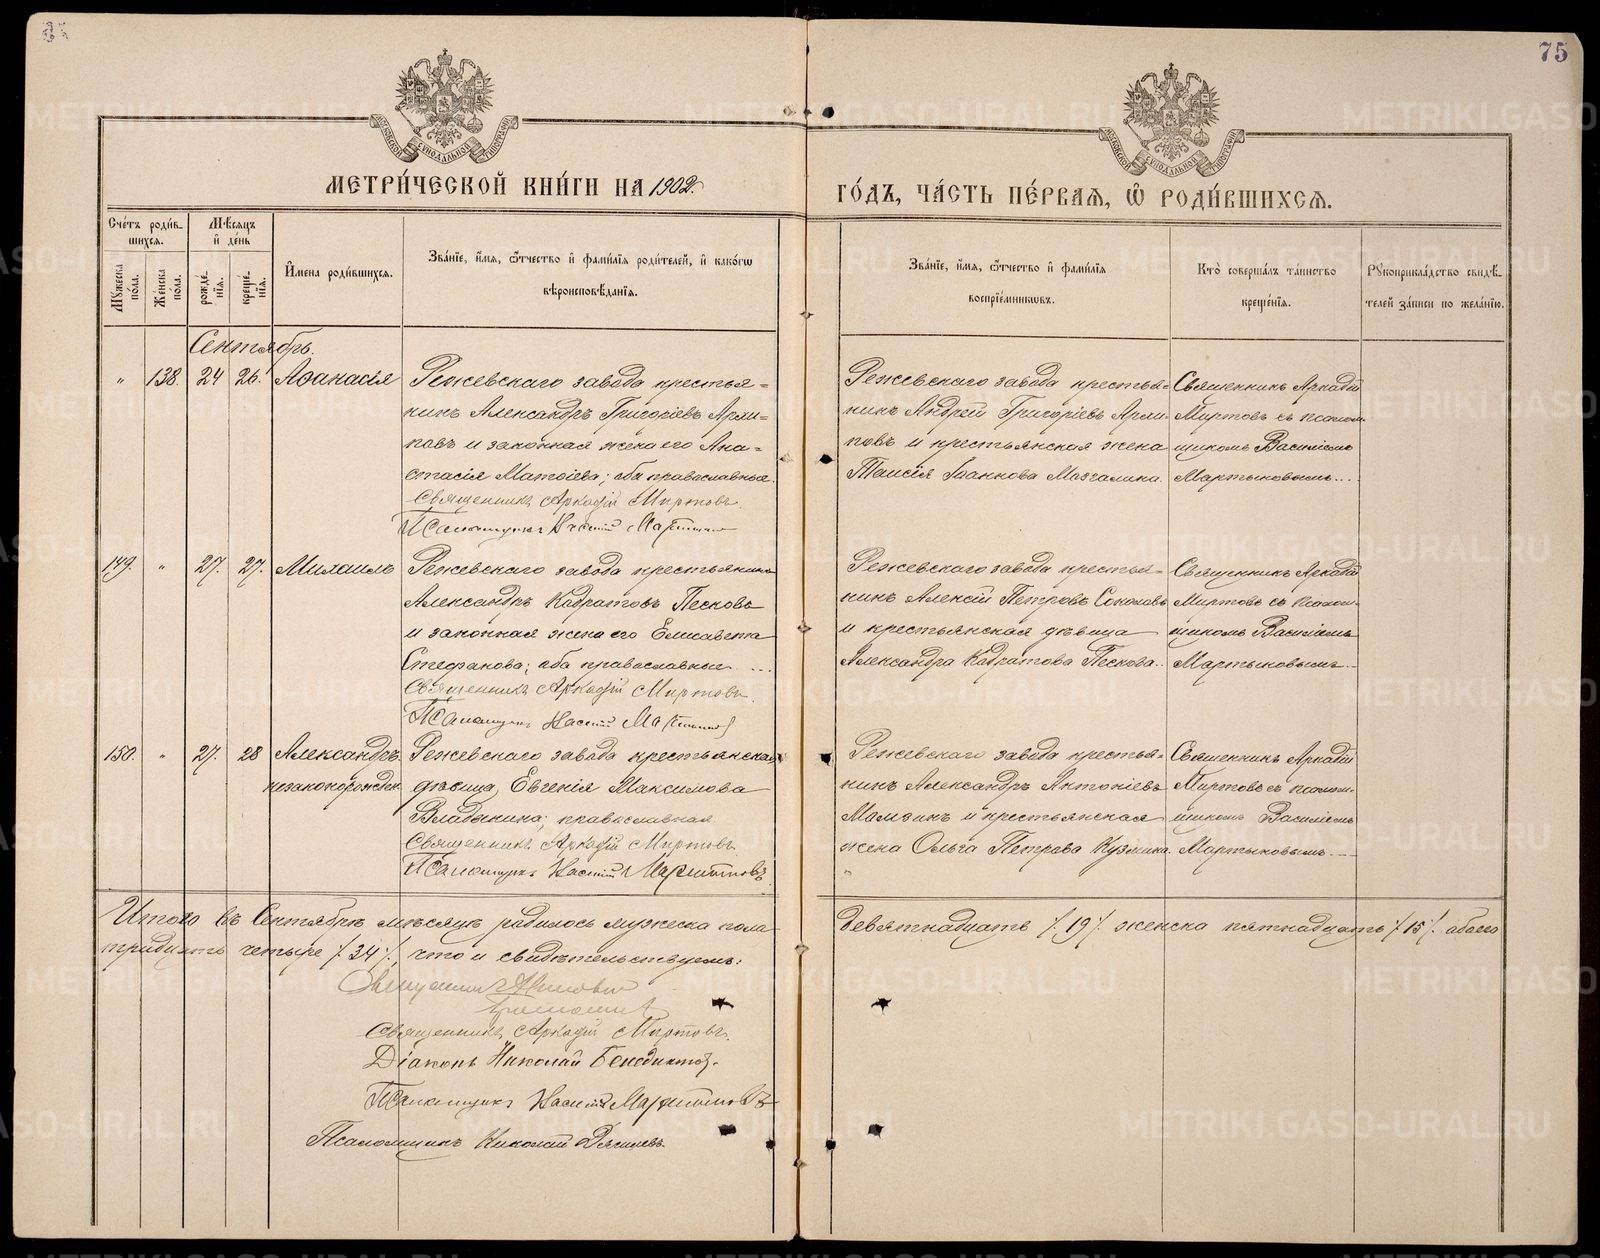 75
МЕТРИ́ЧЕСКОЙ КНИ́ГИ НА 1902 г.
ГО́ДЪ, ЧА́СТЬ ПЕ́РВАЯ, Ѽ РОДИ́ВШИХСЯ.
Сче́тъ роди́в-
шихся.
Мꙋжеска по́ла.
Же́нска по́ла.
Мѣ́сяцъ
и҆ де́нь
рожде́-
нїя.
креще́-
нїя.
И҆мена роди́вшихся.
Зва́нїе, и҆́мя, ѻ҆́тчество и҆ фами́лїя роди́телей, и҆ како́гѡ
вѣроисповѣ́данїя.
Зва́нїе, и҆́мя, ѻ҆́тчество и҆ фами́лїя
воспрїе́мникѡвъ.
Кто̀ соверша́лъ та́инство
креще́нїя.
Рꙋкоприкла́дство свидѣ́-
телей за́писи по жела́нїю.
Сентябрь.
" 138. 24 26. Аѳанасія
Режевскаго завода крестья=
нинъ Александръ Григоріевъ Архи=
повъ и законная жена его Ана=
стасія Матѳіева; оба православные.
Священникъ Аркадій Миртовъ.
Псаломщикъ Василій Мартыновъ
Режевскаго завода крестья=
нинъ Андрей Григоріевъ Архи-
повъ и крестьянская жена
Таисія Іоаннова Мозгалина.
Священникъ Аркадій
Миртовъ съ псалом-
щикомъ Василіемъ
Мартыновымъ....
149. " 27. 27. Михаилъ
Режевскаго завода крестьянинъ
Александръ Кодратовъ Песковъ
и законная жена его Елисавета
Стефанова; оба православные ...
Священникъ Аркадій Миртовъ.
Псаломщикъ Василій Мартыновъ
Режевскаго завода крестья-
нинъ Алексій Петровъ Соколовъ
и крестьянская дѣвица
Александра Кодратова Пескова..
Священникъ Аркадій
Миртовъ съ псалом-
щикомъ Василіемъ
Мартыновымъ
150. " 27. 28 Александръ
незаконорожден.
Режевскаго завода крестьянская
дѣвица, Евгенія Максимова
Владыкина; православная
Священникъ Аркадій Миртовъ.
Псаломщикъ Василій Мартыновъ
Режевскаго завода крестья-
нинъ Александръ Антоніевъ
и крестьянская
жена Ольга Петрова Кузмина.
Священникъ Аркадій
Миртовъ съ псалом-
щикомъ Василіемъ
Мартыновымъ.
Итого въ Сентябрѣ мѣсяцѣ родилось мужеска пола
девятнадцать /.19/. женска пятнадцать /.15/. обоего
тридцать четыре /.34/., что и свидѣтельствуемъ:
Священникъ
Священникъ Аркадій Миртовъ.
Діаконъ Николай Бенедиктовъ.
Псаломщикъ Василій Мартыновъ
Псаломщикъ Николай
METRIKI.GASO-URAL.RU